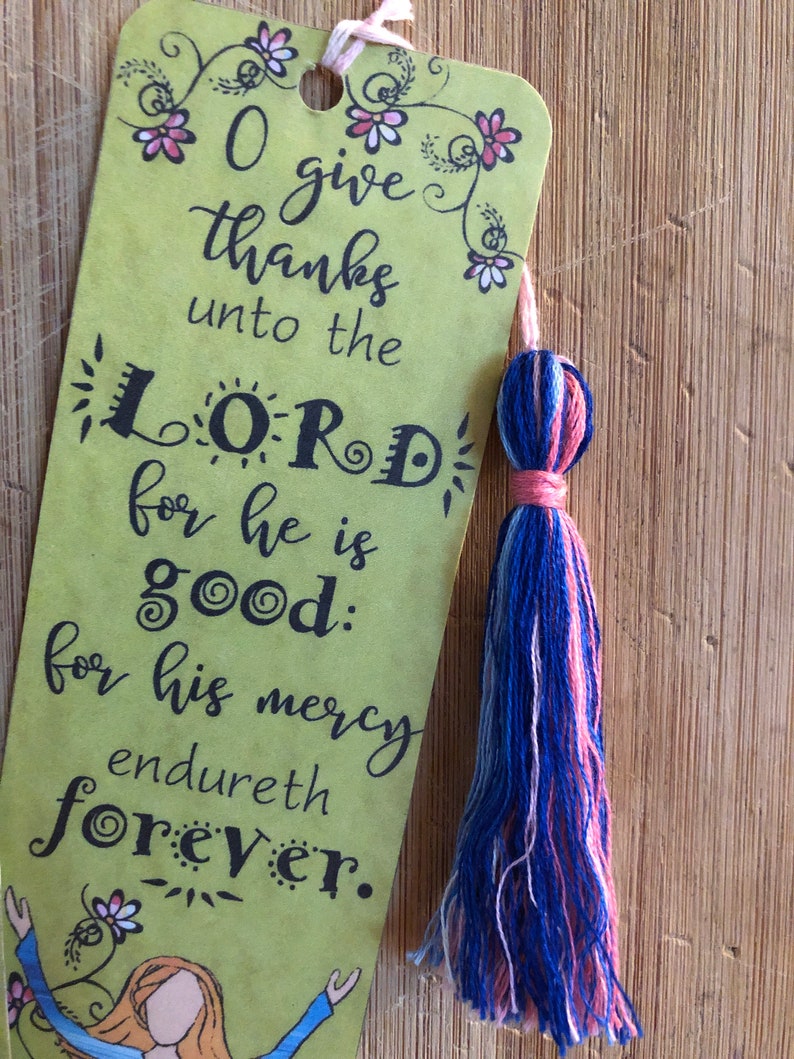 O give
thanks
unto the
LORD
for he is
good:
for his mercy
endureth
forever.